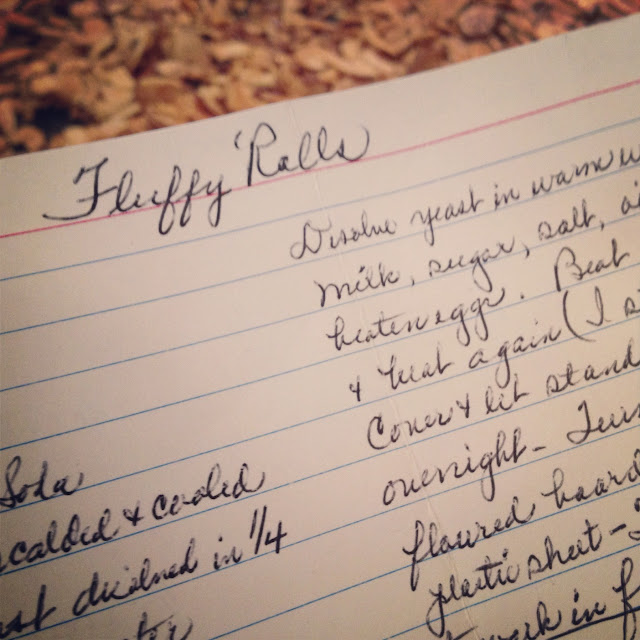 Fluffy Rolls
Disolve yeast in warm
milk, sugar, salt,
beaten eggs. Beat
& beat again (I
Cover & let stand
overnight - Turn
floured board
plastic sheet -
in
Soda
scalded & cooled
disolved in 1/4